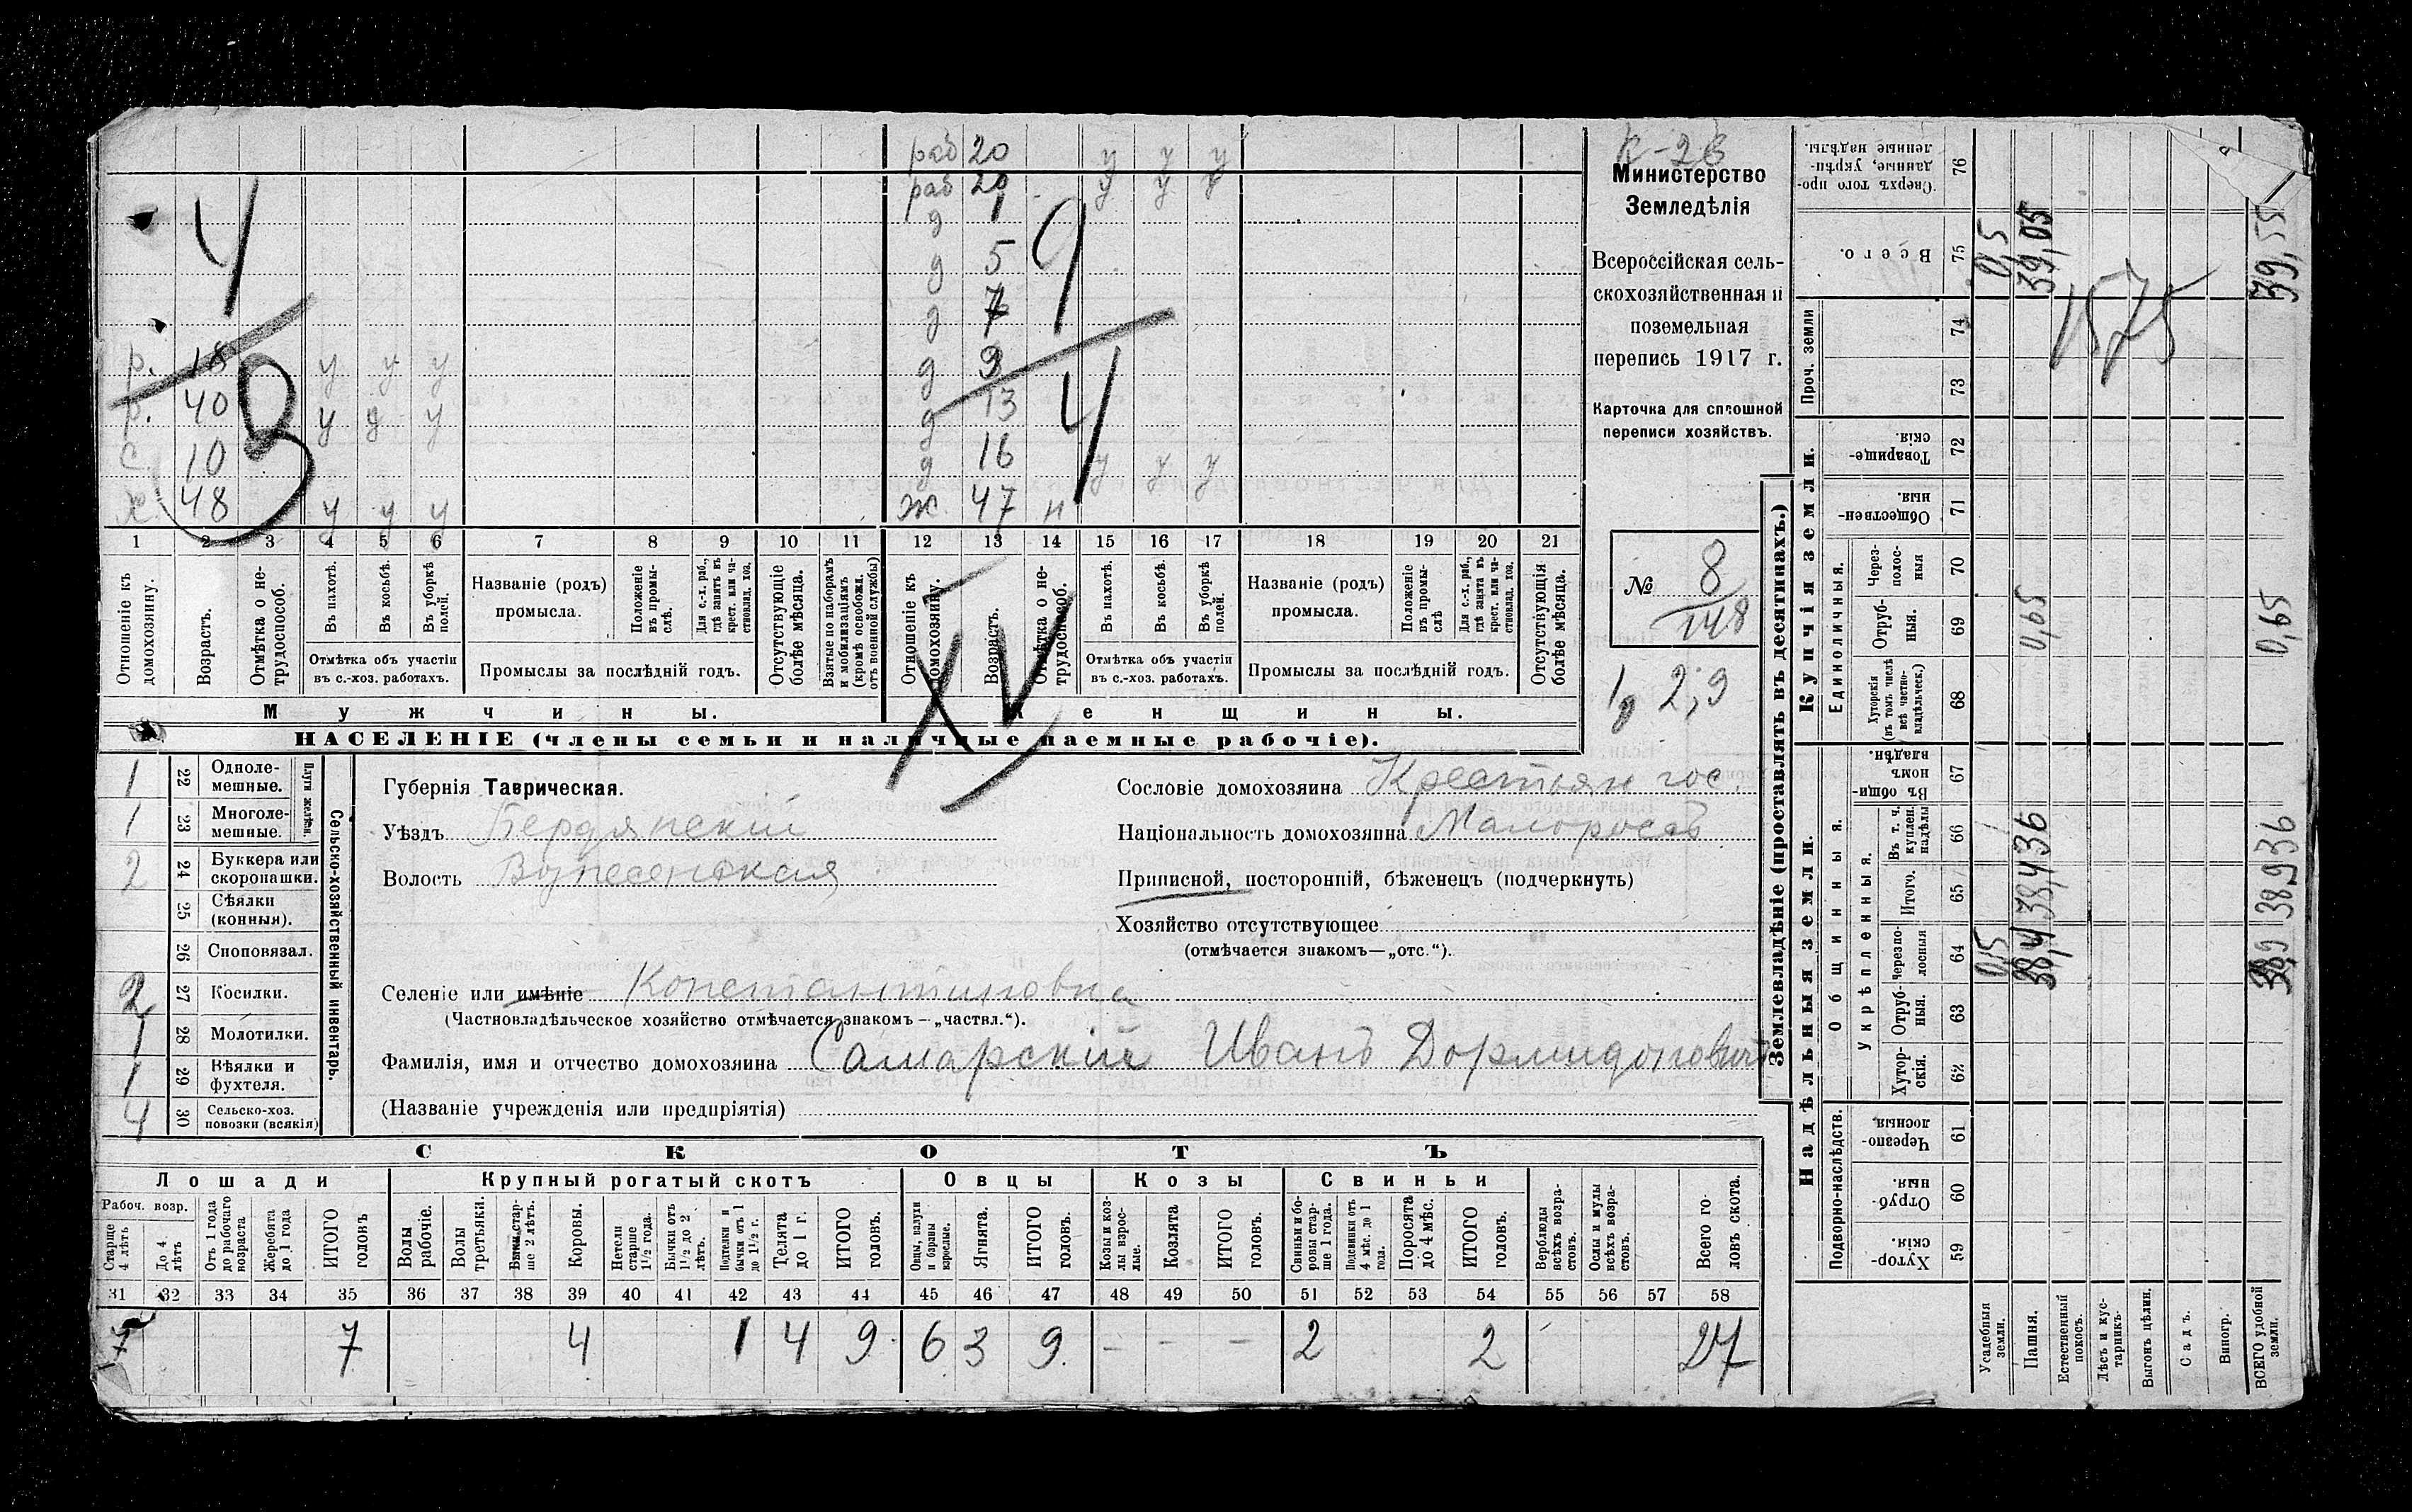 К-23
раб 20 у у у
раб 20 у у у
д 1
д 5
д 7
р. 18 у у у
д 9
р. 40 у у у
д 13
с. 10
д 16 у у у
х 48 у у у
ж 47 н
4
3
9
4
1 2 3 4 5 6 7 8 9 10 11 12 13 14 15 16 17 18 19 20 21
Отношеніе къ домохозяину.
Возрастъ.
Отмѣтка о не-трудоспособ.
Въ пахотѣ.
Въ косьбѣ.
Въ уборкѣ полей.
Отмѣтка объ участіи въ с.-хоз. работахъ.
Названіе (родъ) промысла.
Положеніе въ промы-слѣ.
Для с.-х. раб., гдѣ занятъ въ крест. или ча-стновлад. хоз.
Промыслы за послѣдній годъ.
Отсутствующіе болѣе мѣсяца.
Взятые по наборамъ и мобилизаціямъ (кромѣ освобожд. отъ военной службы)
Отношеніе къ домохозяину.
Возрастъ.
Отмѣтка о не-трудоспособ.
Въ пахотѣ.
Въ косьбѣ.
Въ уборкѣ полей.
Отмѣтка объ участіи въ с.-хоз. работахъ.
Названіе (родъ) промысла.
Положеніе въ промы-слѣ
Для с.-х. раб., гдѣ занятъ въ крест. или ча-стновлад. хоз.
Промыслы за послѣдній годъ.
Отсутствующія болѣе мѣсяца.
Мужчины.
Женщины.
XV
НАСЕЛЕНІЕ (члены семьи и наличные наемные рабочіе).
Министерство
Земледѣлія
Всероссійская сель-
скохозяйственная и
поземельная
перепись 1917 г.
Карточка для сплошной
переписи хозяйствъ.
№ 8
148
2,9
1 22 Одноле-мешные.
1 23 Многоле-мешные.
Плуги желѣзн.
2 24 Буккера или скоропашки.
25 Сѣялки (конныя).
26 Сноповязал.
2 27 Косилки.
1 28 Молотилки.
1 29 Вѣялки и фухтеля.
4 30 Сельско-хоз. повозки (всякія)
Сельско-хозяйственный инвентарь.
Губернія Таврическая.
Уѣздъ Бердянскій
Волость Вознесенская
Сословіе домохозяина Крестьян гос.
Національность домохозяина Малороссъ
Приписной, посторонній, бѣженецъ (подчеркнуть)
Хозяйство отсутствующее
(отмѣчается знакомъ—„отс.“).
Селеніе или имѣніе Константиновка
(Частновладѣльческое хозяйство отмѣчается знакомъ—„частвл.“).
Фамилія, имя и отчество домохозяина Самарскій Иванъ Дормидоновичъ
(Названіе учрежденія или предпріятія)
СКОТЪ
Лошади
Крупный рогатый скотъ
Овцы
Козы
Свиньи
Рабоч. возр.
Старше 4 лѣтъ
До 4 лѣтъ
Отъ 1 года до рабочаго возраста
Жеребята до 1 года
ИТОГО головъ
Волы рабочіе.
Волы третьяки.
Быки стар-ше 2 лѣтъ.
Коровы.
Нетели старше 1½ года.
Бычки отъ 1½ до 2 лѣтъ.
Подтелки и бычки отъ 1 до 1½ г.
Телята до 1 г.
ИТОГО головъ.
Овцы, валухи и бараны взрослые.
Ягнята.
ИТОГО головъ.
Козы и коз-лы взрос-лые.
Козлята
ИТОГО головъ.
Свиньи и бо-ровы стар-ше 1 года.
Подсвинки отъ 4 мѣс. до 1 года.
Поросята до 4 мѣс.
ИТОГО головъ.
Верблюды всѣхъ возра-стовъ.
Ослы и мулы всѣхъ возра-стовъ.
Всего го-ловъ скота.
31 32 33 34 35 36 37 38 39 40 41 42 43 44 45 46 47 48 49 50 51 52 53 54 55 56 57 58
7 7 4 1 4 9 6 3 9 - - - 2 2 27
Землевладѣніе (проставлять въ десятинахъ.)
Купчія земли.
Надѣльныя земли.
Сверхъ того про-данные, укрѣп-ленные надѣлы. 76
Всего. 75 0,5 39,05 39,55
Проч. земли 74
73
1575
Товарище-скія. 72
Обществен-ныя. 71
Единоличныя.
Через-полос-ныя 70
Отруб-ныя. 69 0,65 0,65
Хуторскія (въ томъ числѣ всѣ частно-владѣльческ.) 68
Общинныя.
Укрѣпленныя.
Въ общи-номъ владѣн. 67
Въ т. ч. куплен. надѣлы 66 36 36
Итого. 65 38,4 38,9
Черезпо-лосныя 64 0,5 38,4 38,9
Отруб-ныя. 63
Хутор-скія. 62
Подворно-наслѣдств.
Черезпо-лосныя. 61
Отруб-ныя. 60
Хутор-скія. 59
Усадебныя земли.
Пашня.
Естественный покосъ.
Лѣсъ и кус-тарникъ.
Выгонъ цѣлин.
Садъ.
Виногр.
ВСЕГО удобной земли.